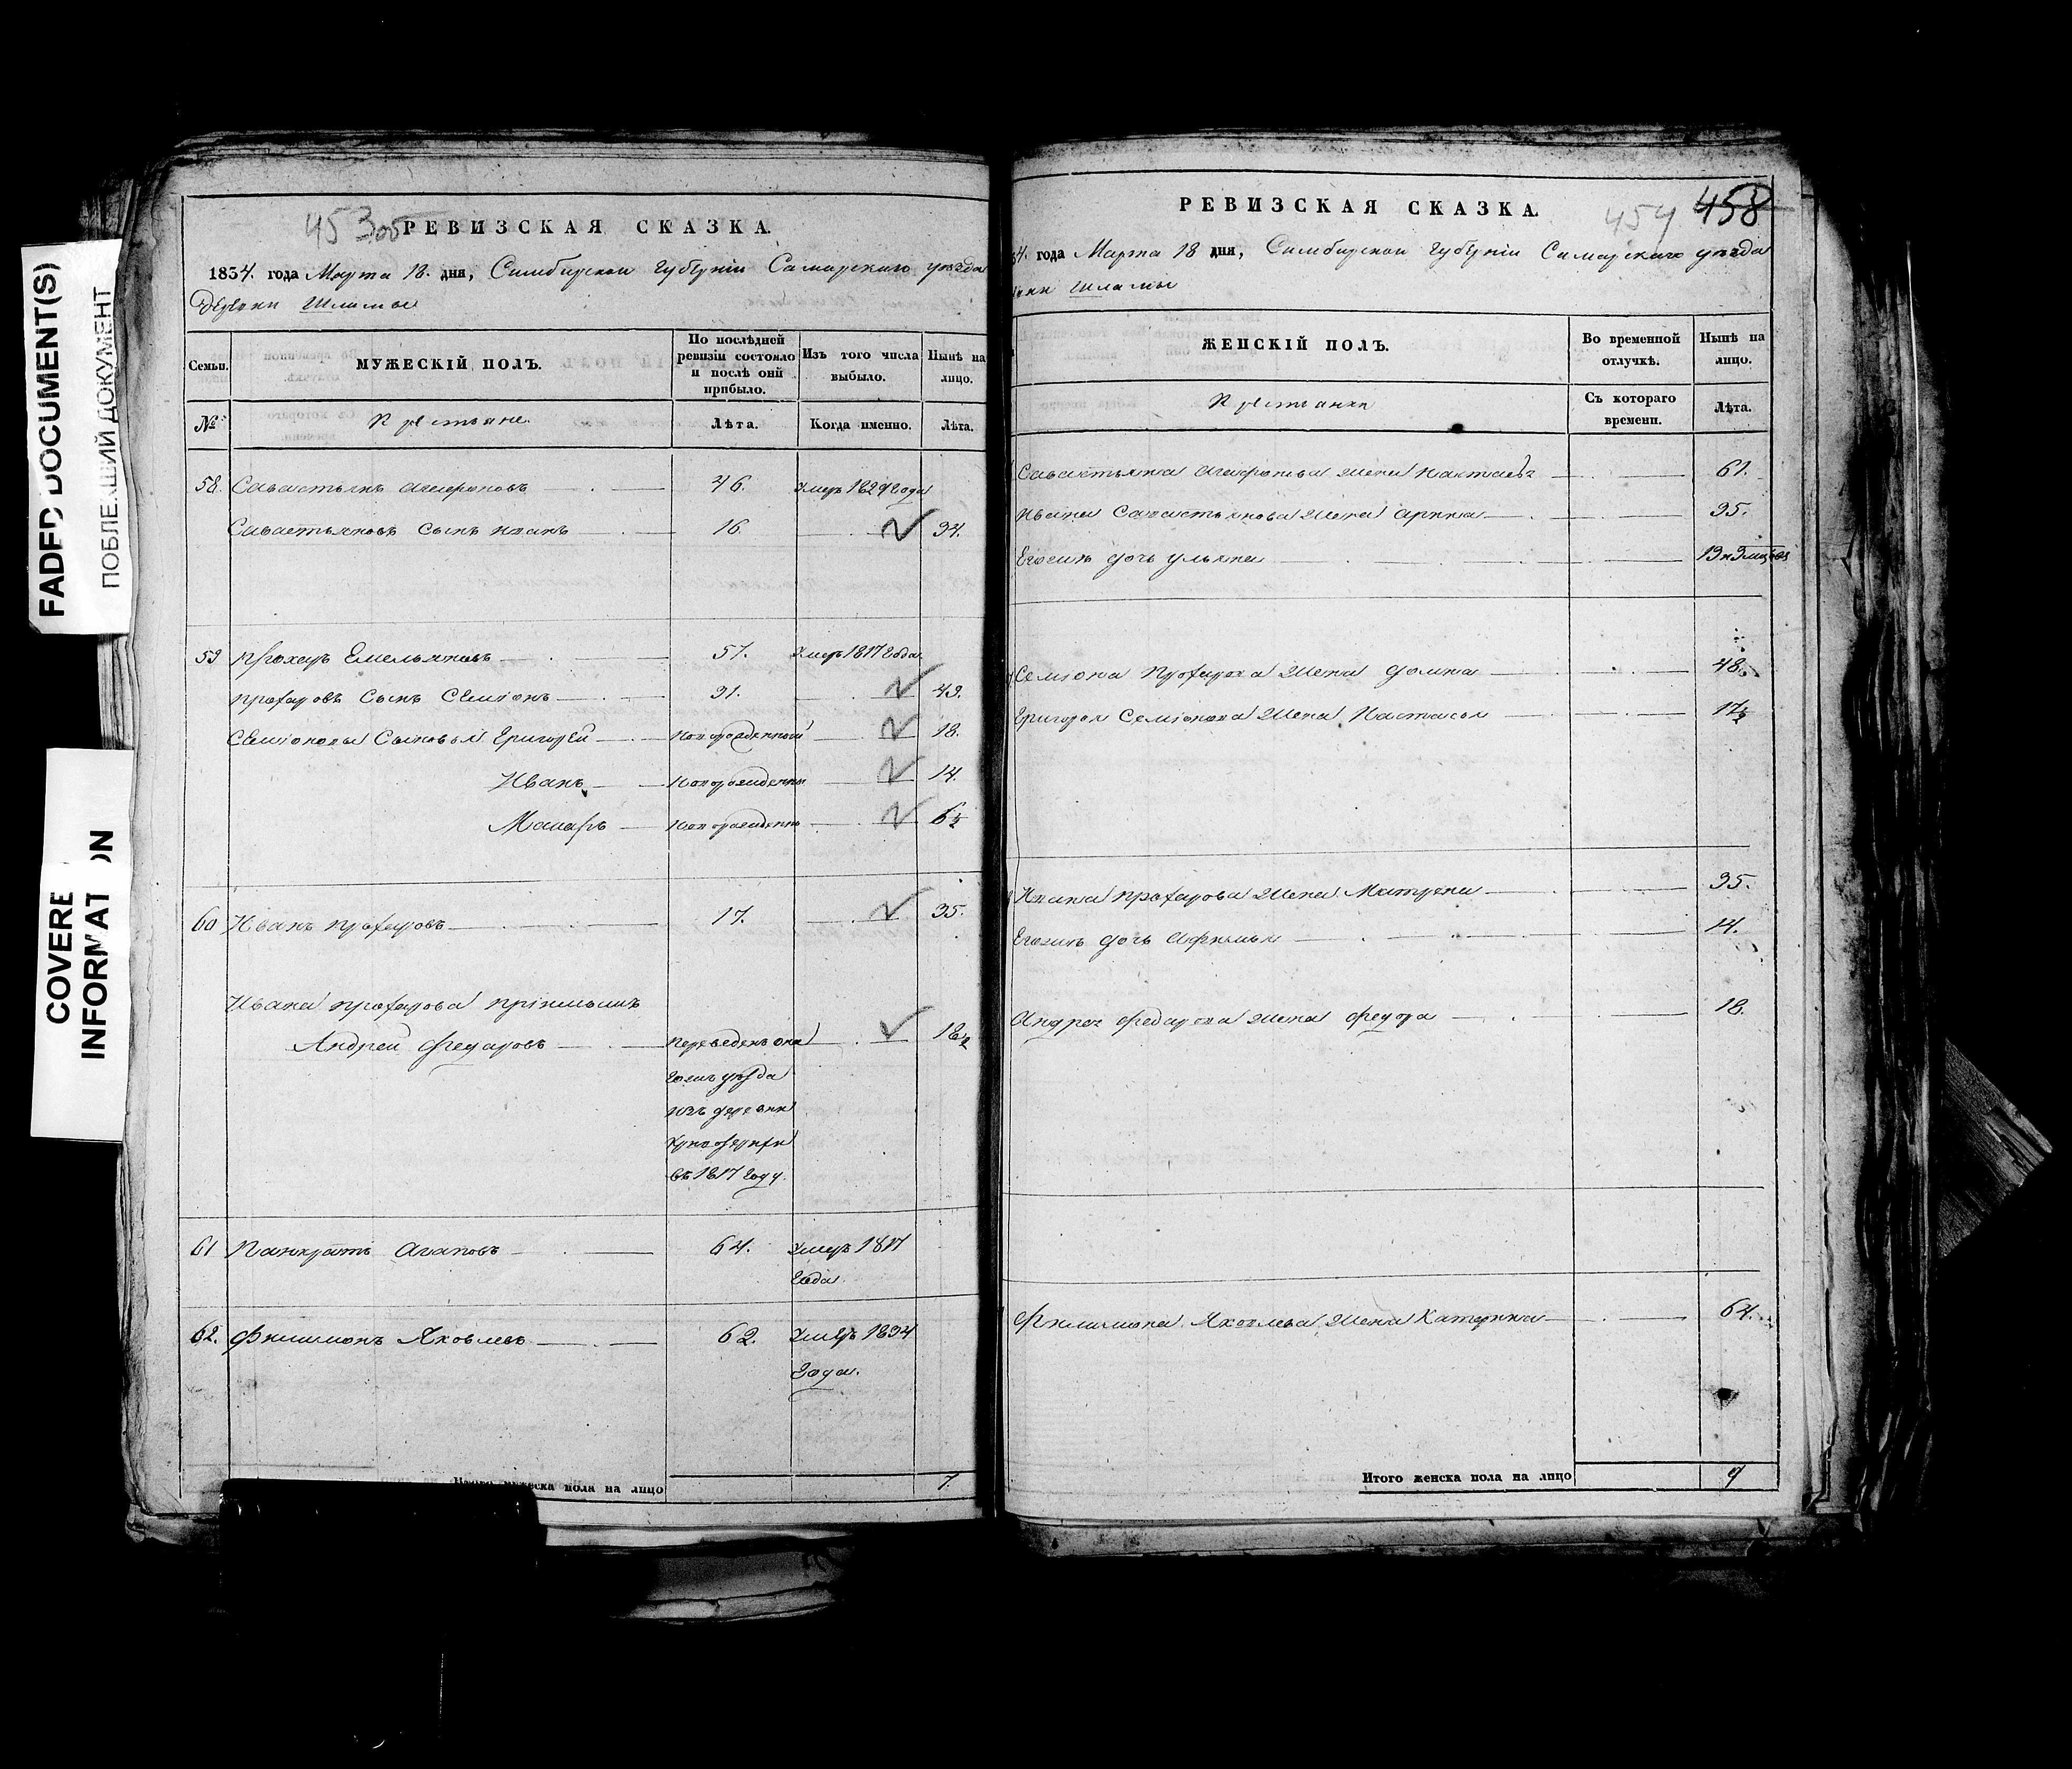 FADED DOCUMENT(S)
ПОБЛЕКШИЙ ДОКУМЕНТ
COVERE
INFORMAT ON
453об
РЕВИЗСКАЯ СКАЗКА.
1834. года Марта 18. дня, Симбирской Губерніи Самарскаго уезда
Деревни Шламы
Семьи.
МУЖЕСКІЙ ПОЛЪ.
По послѣдней ревизіи состояло и послѣ оній прибыло.
Изъ того числа выбыло.
Нынѣ на лицо.
№
Крестьяне.
Лѣта.
Когда именно.
Лѣта.
58. Савастьянъ Агафоновъ 46. Умеръ 1829 Года
Савастьяновъ Сынъ Иванъ 16. 34.
59 Прохаръ Емельяновъ 57. Умеръ 1817 Года.
Прохаровъ Сынъ Семіонъ 31. 49.
Семіоновы Сыновья Григорей Новорожденный 18.
Иванъ Новорожденны 14.
Макаръ Новорожденны 6½
60 Иванъ Прохаровъ 17. 35.
Ивана Прохарова Пріимышъ
Андрей Федаровъ Переведенъ она 18½
Гожъ уезда
изъ деревни
въ 1817 Году.
61 Панкратъ Агаповъ 64. Умеръ 1817
Года
62. Филимонъ Яковлевъ 62. Умеръ 1834
Года.
Итого мужеска пола на лицо 7.
РЕВИЗСКАЯ СКАЗКА.
454 458
34. года Марта 18 дня, Симбирской Губерніи Самарскаго уезда
вни Шламы
ЖЕНСКІЙ ПОЛЪ.
Во временной отлучкѣ.
Нынѣ на лицо.
Крестьянки
Съ котораго времени.
Лѣта.
Савастьяна Агафонова Жена Настасья 61.
Ивана Савастьянова Жена Арина 35.
Егожъ дочь Ульяна 13 и 9 месецовъ
Семіона Прохарова Жена Домна 48.
Григорья Семіонова Жена Настасья 17½
Ивана Прохарова Жена Матрена 35.
Егожъ дочь Афимья 14.
Андрея Федарова Жена Федора 18.
Филимона Яковлева Жена Катерина 64.
Итого женска пола на лицо 9